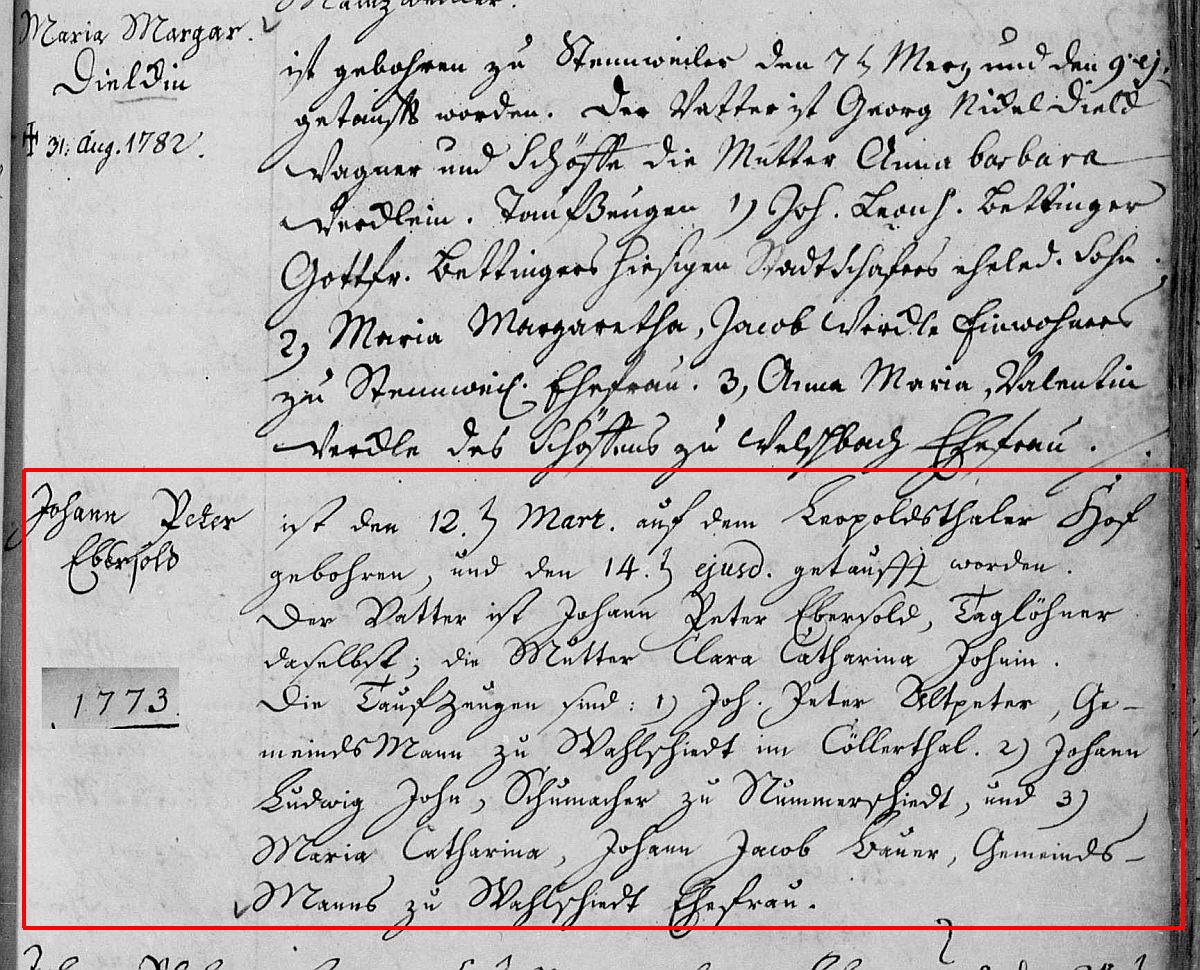 Maria Margar.
Dieldin
† 31. Aug. 1782.
ist gebohren zu Stennweiler den 7t Merz und den 9. ej.
getaufft worden. Der Vatter ist Georg Nickel Dield
Wagner und Schöffe die Mutter Anna barbara
Werdlein. TaufZeugen 1) Joh. Leonh. Bettinger
Gottfr. Bettingers hiesigen Stadtschafers eheled. Sohn.
2, Maria Margaretha, Jacob Werdle Einwohners
zu Stennweil. Ehefrau. 3, Anna Maria, Valentin
Werdle des Schöffens zu Welschbach Ehefrau.
Johann Peter
Ebersold
1773.
ist den 12.t Mart. auf dem Leopoldsthaler Hof
gebohren, und den 14.t ejusd. getaufft worden.
Der Vatter ist Johann Peter Ebersold, Taglöhner
daselbst; die Mutter Clara Catharina Johnin.
Die Taufzeugen sind: 1) Joh. Peter Altpeter, Ge-
meindsMann zu Wahlschiedt im Cöllerthal. 2) Johann
Ludwig John, Schumacher zu Nummerschiedt, und 3)
Maria Catharina, Johann Jacob Bauer, Gemeinds-
Manns zu Wahlschiedt Ehefrau.